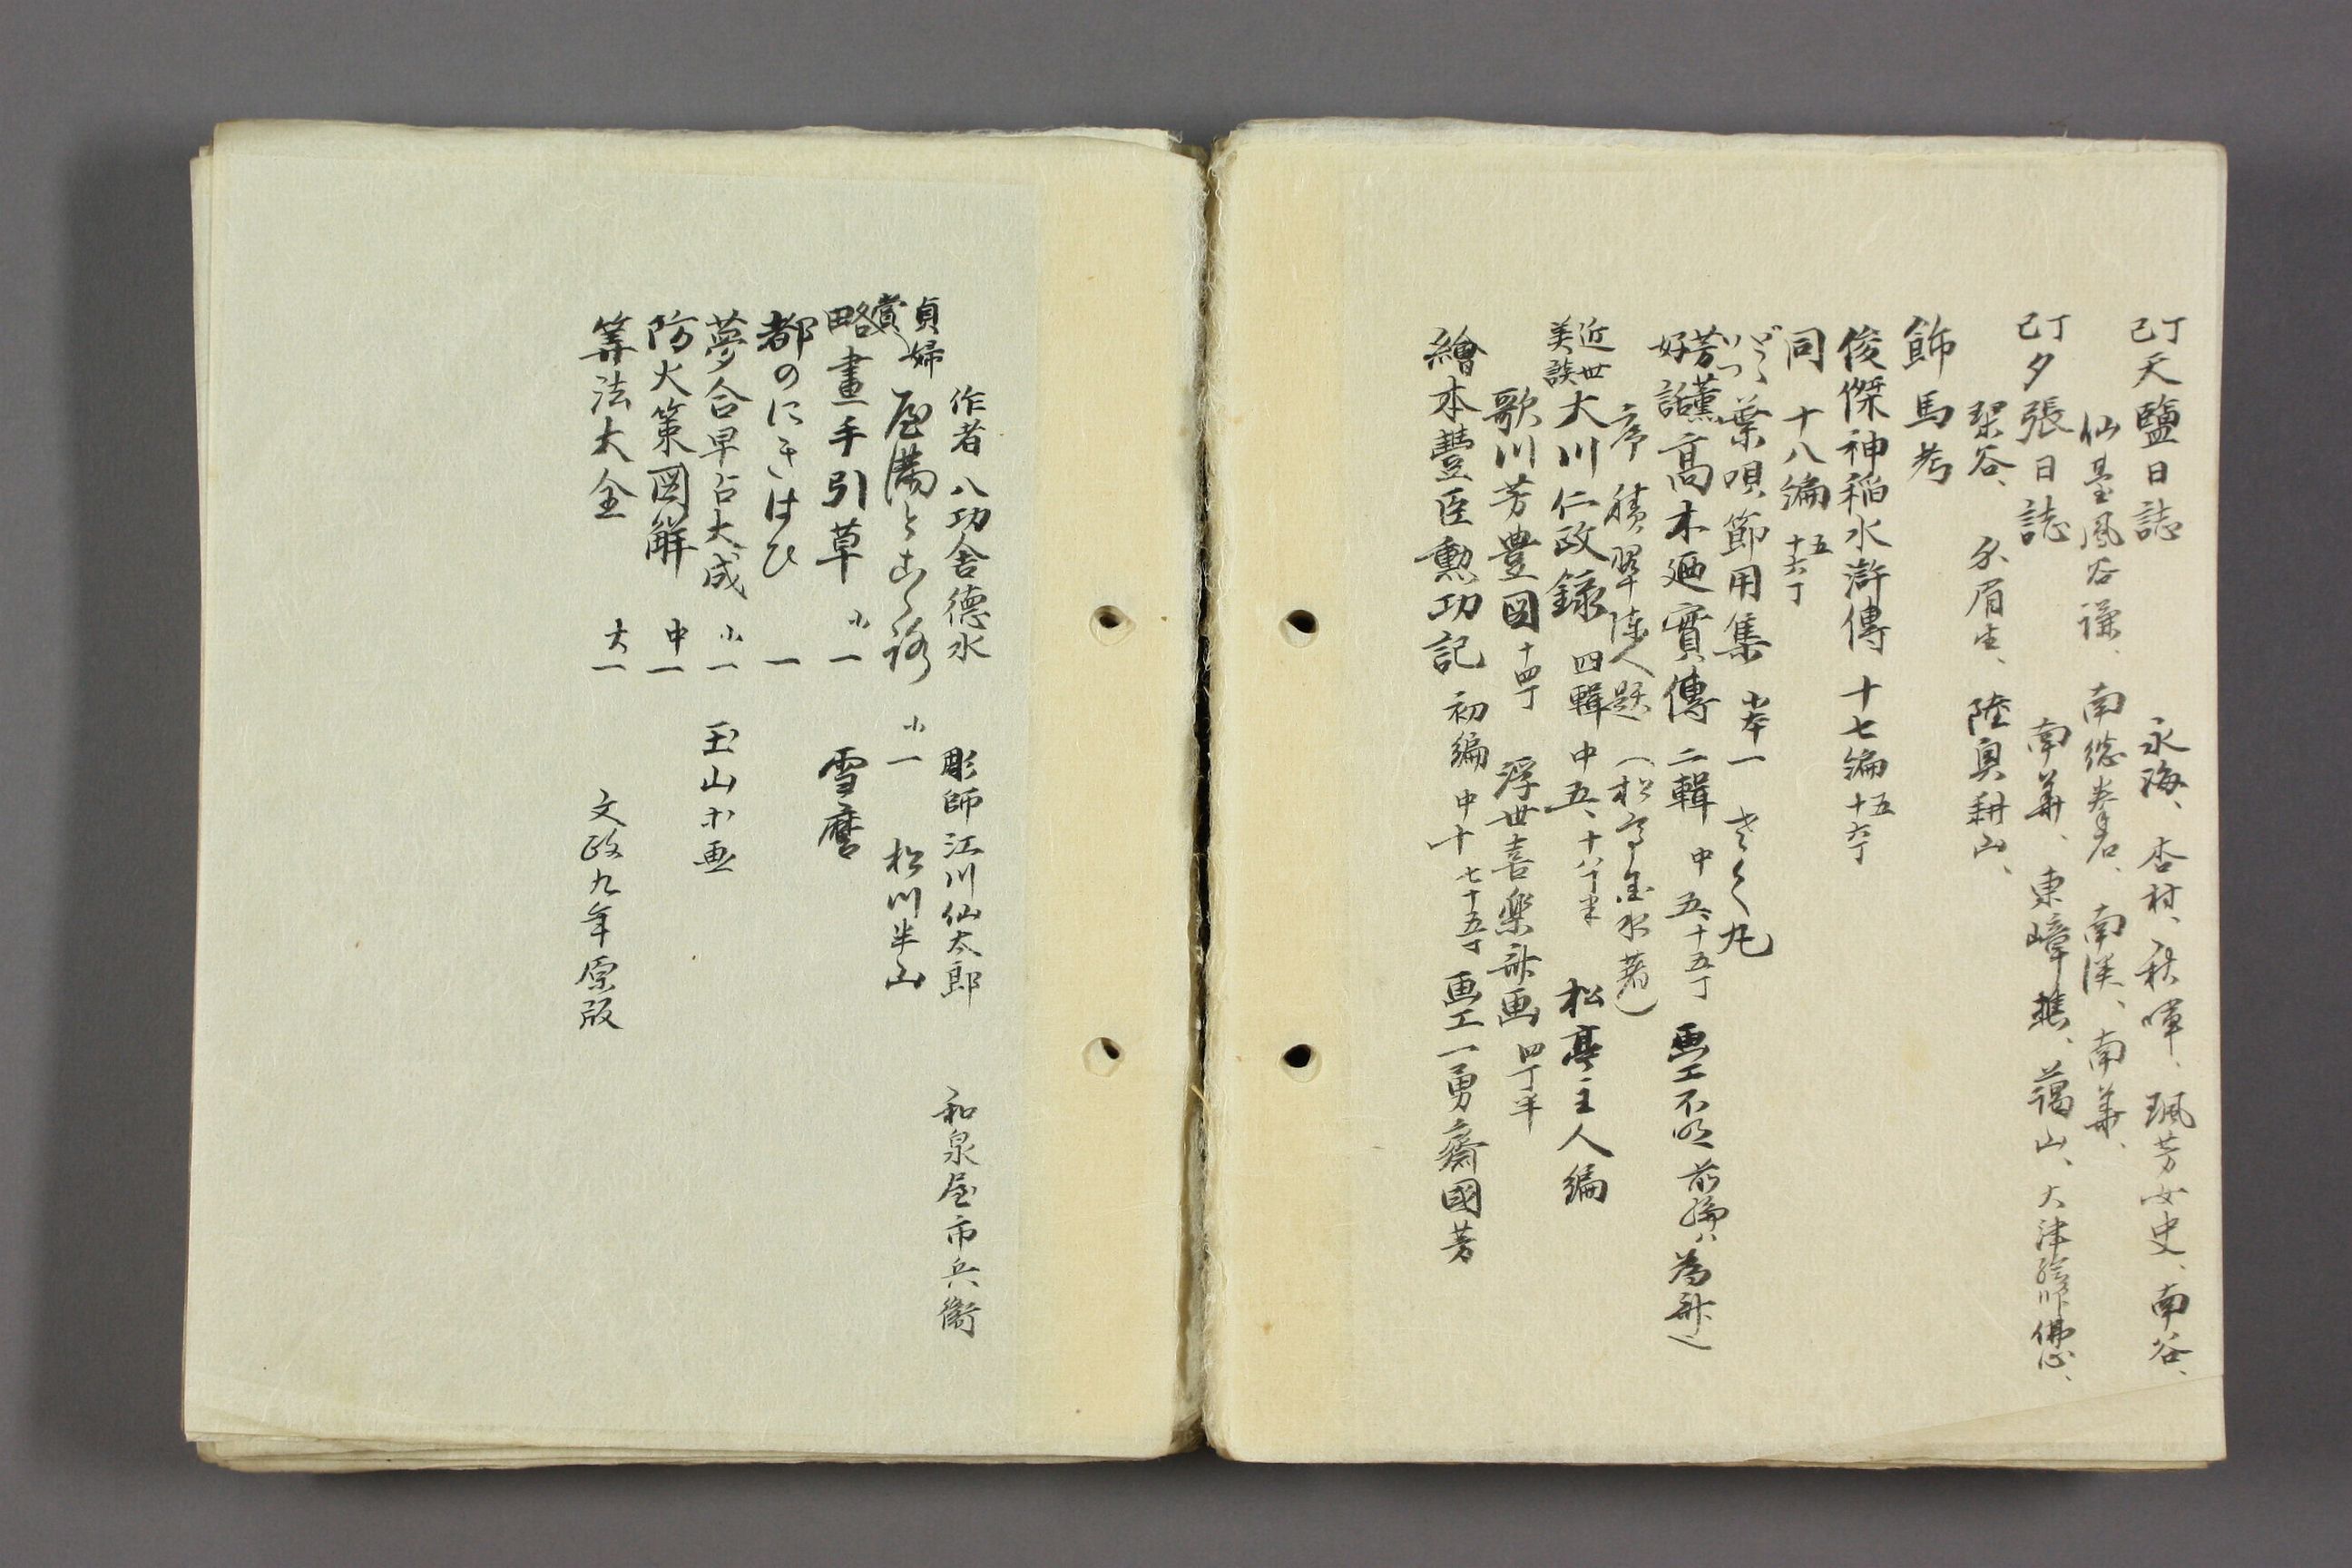 丁巳天鹽日誌 永海、杏村、秋暉、珮芳女史、南谷、
仙臺風谷謙、南總拳石、南渓、南華、
丁巳夕張日誌 南華、東嶂樵、藹山、大津繪師佛心、
琴谷、糸眉生、陸奥耕山、
飾馬考
俊傑神稲水滸傳 十七編 五十六丁
同 十八編 五十六丁
葉唄節用集 小本一 さくら丸
芳薫好話高木廼實傳 二輯 中五、十五丁 画工不明 前編ハ為斎
序 積翠陳人題（松亭金水著）
近世美談大川仁政録 四輯 中五、十八丁半 松亭主人編
歌川芳豊図 十四丁 浮世喜楽斎画 四丁半
繪本豐臣勲功記 初編 中十 七十五丁 画工一勇齋國芳
作者 八功舎德水 彫師江川仙太郎 和泉屋市兵衛
貞婦 屋満とこゝ路 小一 松川半山
略畫手引草 小一 雪麿
都のにきはひ 一
夢合早占大成 小一 玉山 画
防火策図解 中一
算法大全 大一 文政九年原版